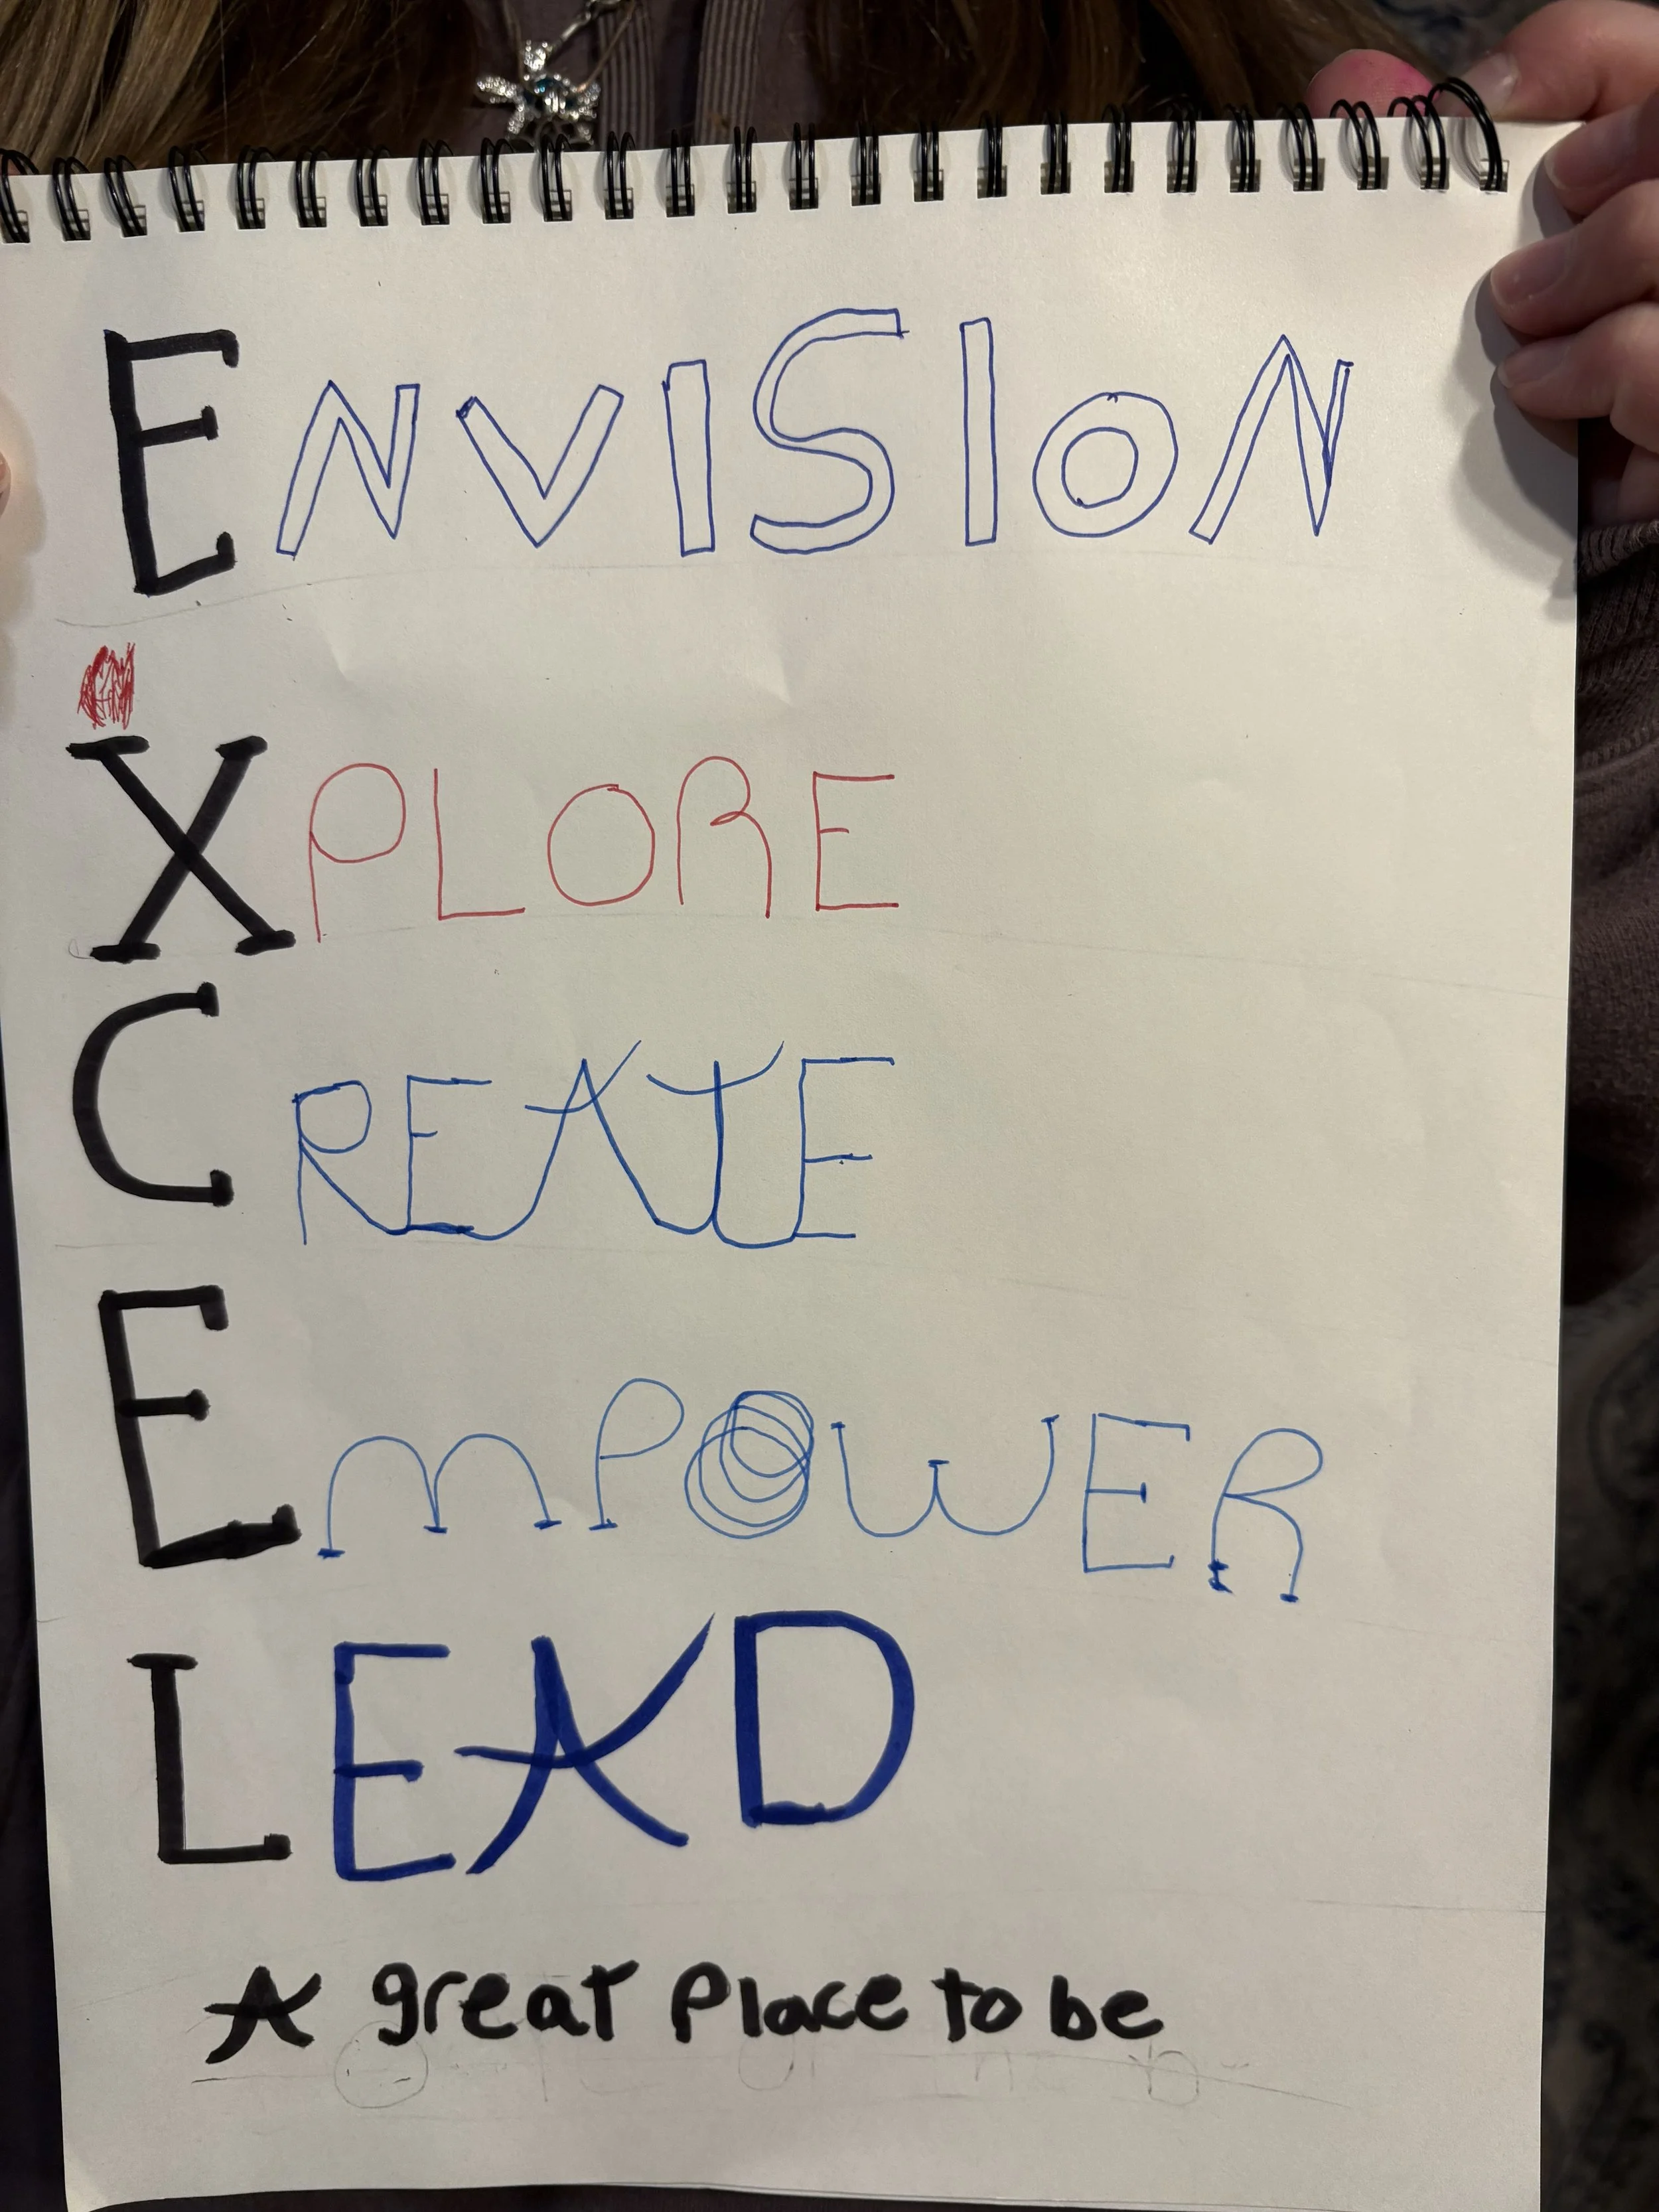 ENVISION
XPLORE
CREATE
EMPOWER
LEAD
A great Place to be